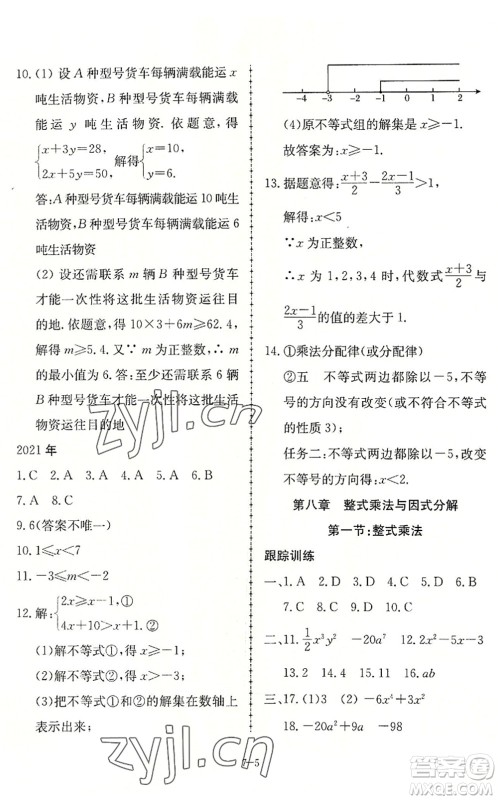 10.(1) 设 A 种型号货车每辆满载能运 x
吨生活物资, B 种型号货车每辆满载
能运 y 吨生活物资. 依题意, 得
{x+3y=28, 2x+5y=50, 解得 {x=10, y=6.
答: A 种型号货车每辆满载能运 10 吨生
活物资, B 种型号货车每辆满载能运 6
吨生活物资
(2) 设还需联系 m 辆 B 种型号货车
才能一次性将这批生活物资运往目的
地. 依题意, 得 10×3+6m≥62.4, 解
得 m≥5.4. 又∵ m 为正整数, ∴ m
的最小值为 6. 答: 至少还需联系 6 辆
B 种型号货车才能一次性将这批生活
物资运往目的地
2021 年
1. C 2. A 3. C 4. A 5. C 6. C
7. A 8. A
9. 6(答案不唯一)
10. 1≤x<7
11. -3≤x<-2
12. 解: {2x≥x-1,① 4x+10>x+1,②
(1)解不等式①, 得 x≥-1
(2)解不等式②, 得 x>-3
(3)把不等式①和②的解集在数轴上
表示出来;
-4 -3 -2 -1 0 1 2
(4)原不等式组的解集是 x≥-1.
故答案为: x≥-1.
13. 据题意得: (x+3)/2-(2x-1)/3>1,
解得: x<5
∵ x 为正整数,
∴ 当 x=1,2,3,4 时, 代数式 (x+3)/2 与
(2x-1)/3 的值的差大于 1.
14. ①乘法分配律(或分配律)
②五 不等式两边都除以-5, 不等
号的方向没有改变(或不符合不等式
的性质 3);
任务二: 不等式两边都除以-5, 改变
不等号的方向得: x<2.
第八章 整式乘法与因式分解
第一节:整式乘法
跟踪训练
一、1. A 2. D 3. A 4. D 5. D 6. A
7. C 8. C 9. D 10. A
二、11. 1/2x³y² -20a⁷ 12. 2x²-5x-3
13. 2 14. 4 15. 11 16. ab
三、17. (1)3 (2)-6x⁴+x³
18. -20a²+9a -98
zyjl.cn
zyjl.cn
7-5
答案圈
MXQE.COM